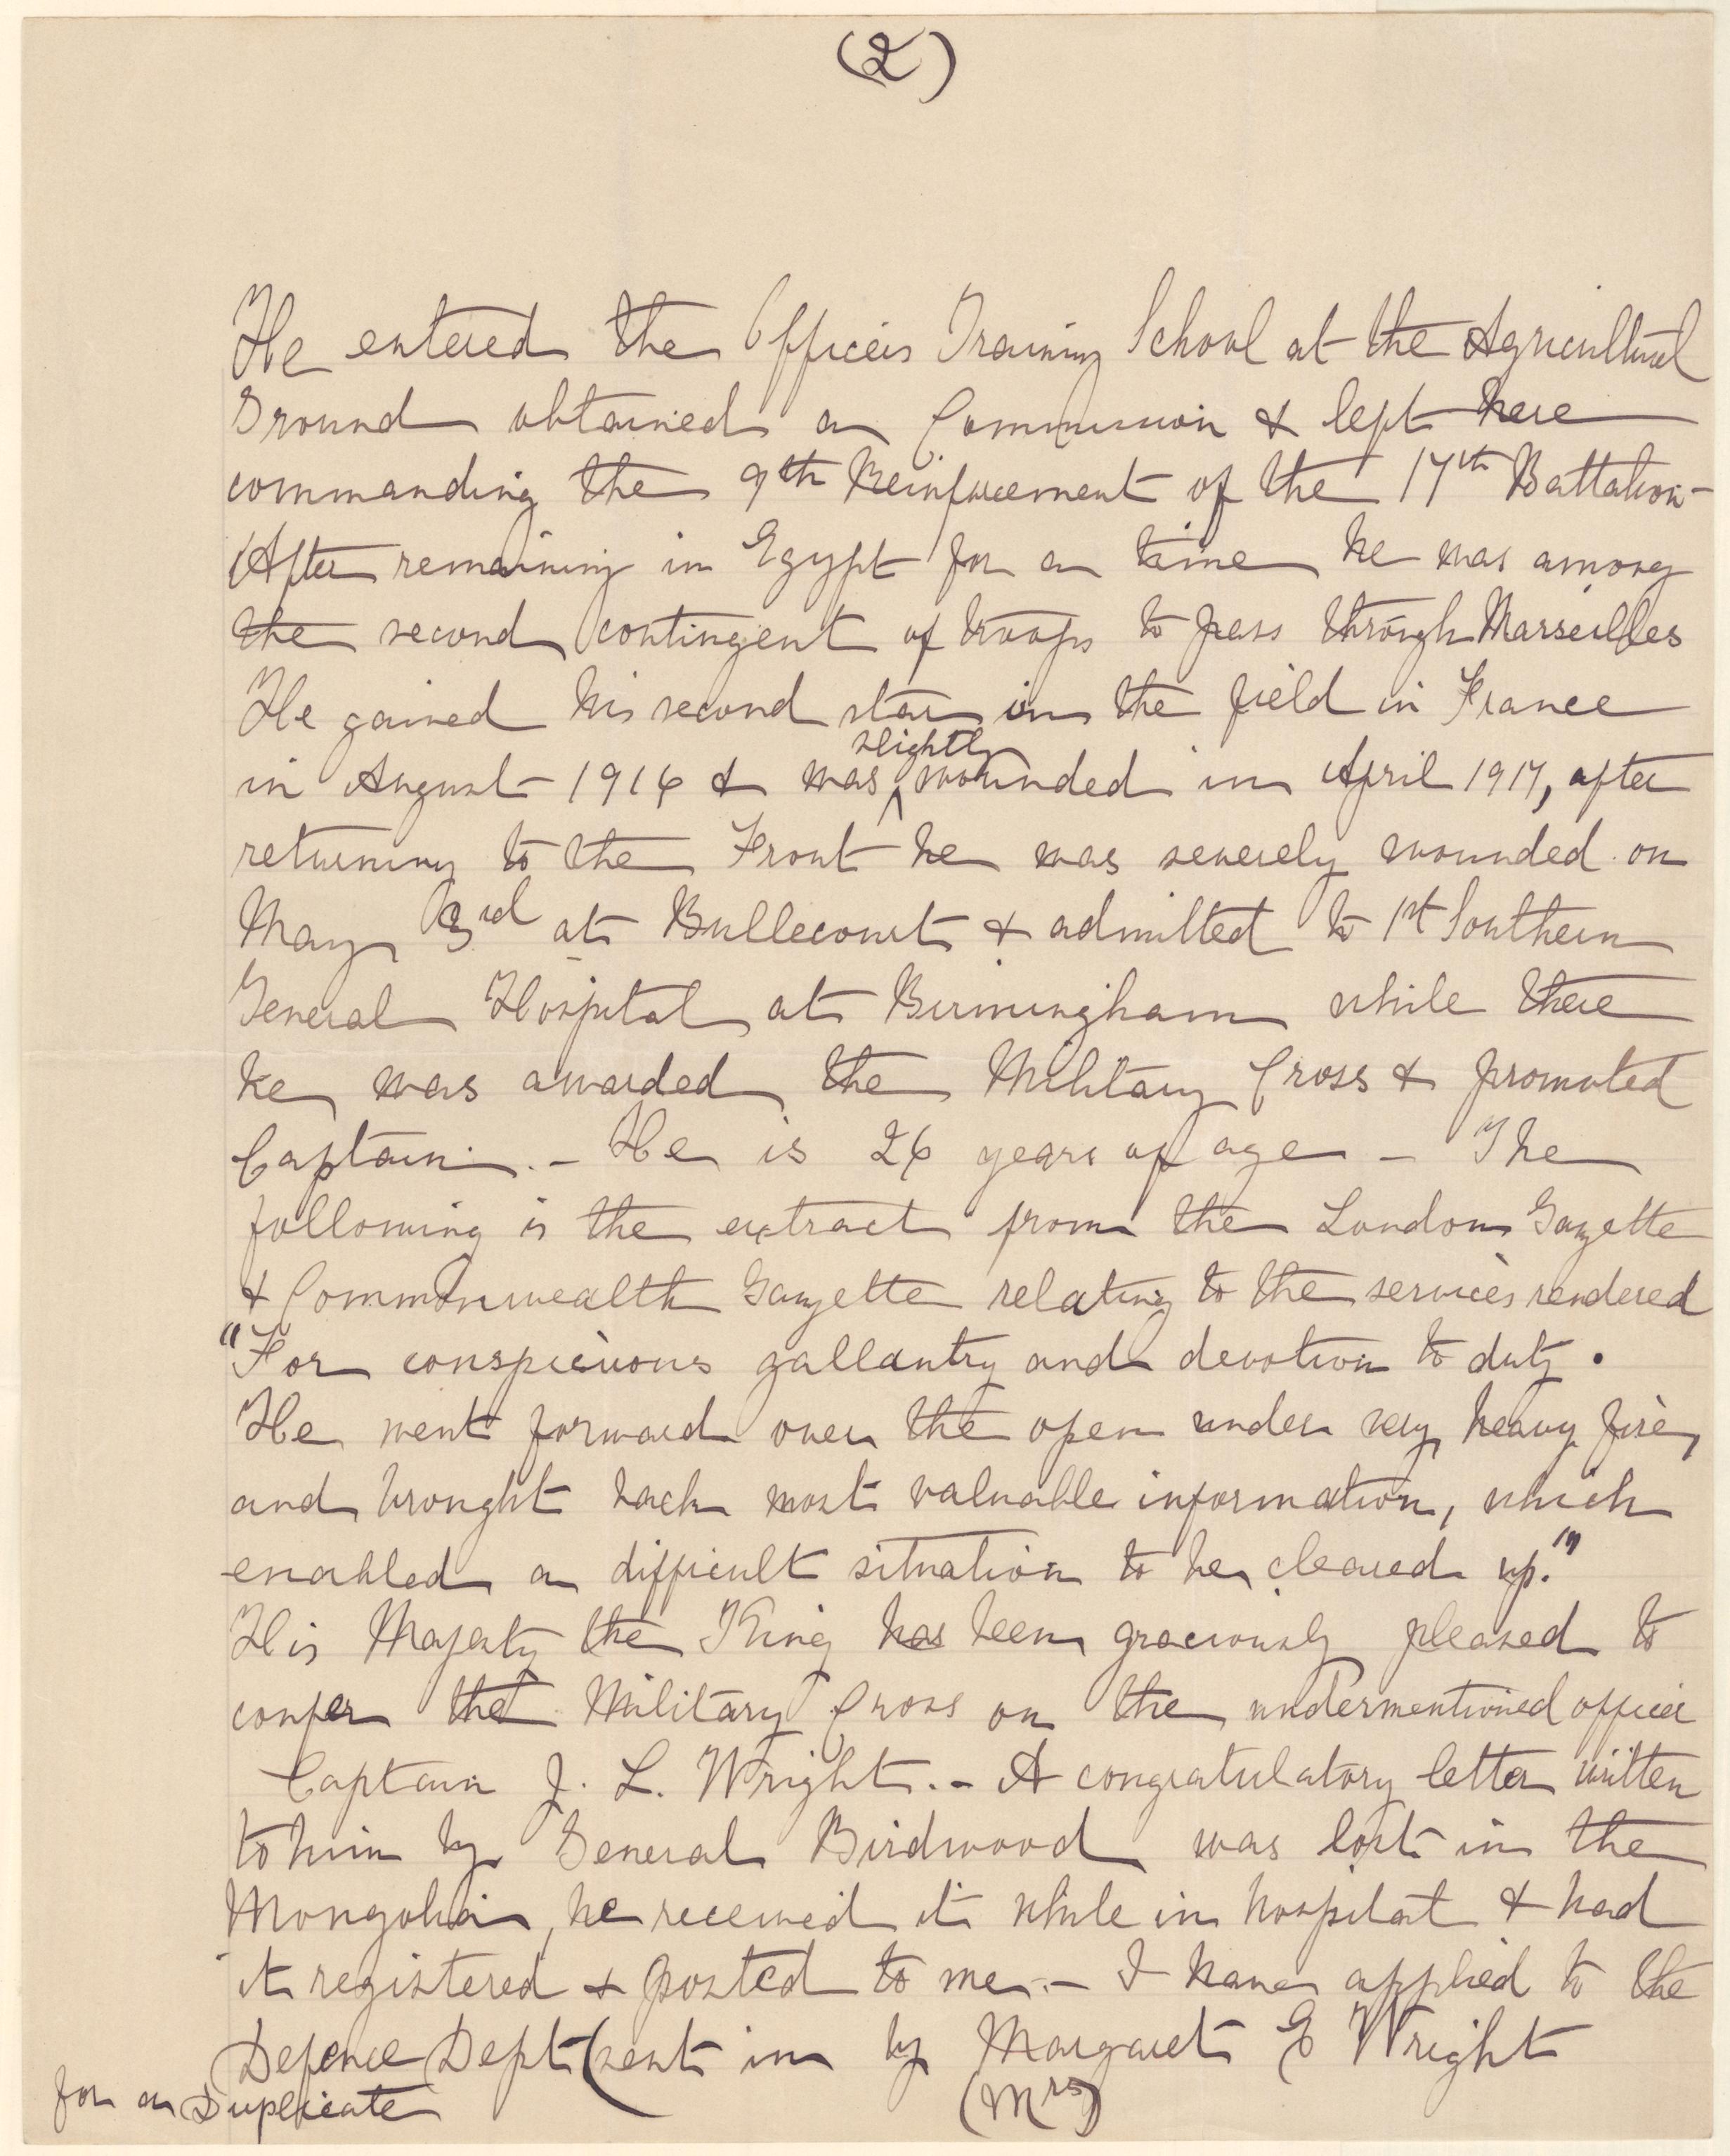 (2)
He entered the Officers Training School at the Agricultural
Ground obtained a Commission & left here
commanding the 9th Reinforcement of the 17th Battalion -
After remaining in Egypt for a time he was among
the second contingent of troops to pass through Marseilles
He gained his second star in the field in France
slightly
in August 1916 & was ^ wounded in April 1917, after
returning to the Front he was severely wounded on
May 3rd at Bullecourt & admitted to 1st Southern
General Hospital at Birmingham while there
he was awarded the Military Cross & promoted
Captain. - He is 26 years of age - The
following is the extract from the London Gazette
& Commonwealth Gazette relating to the services rendered
"For conspicuous gallantry and devotion to duty.
He went forward over the open under very heavy fire,
and brought back most valuable information, which
enabled a difficult situation to be cleared up."
His Majesty the King has been graciously pleased to
confer the Military Cross on the undermentioned officer
Captain J. L. Wright. - A congratulatory letter written
to him by General Birdwood was lost in the
Mongolia, he received it while in hospital & had
it registered & posted to me. - I have applied to the
Defence Dept (sent in by Margaret E Wright
for a Duplicate (Mrs)